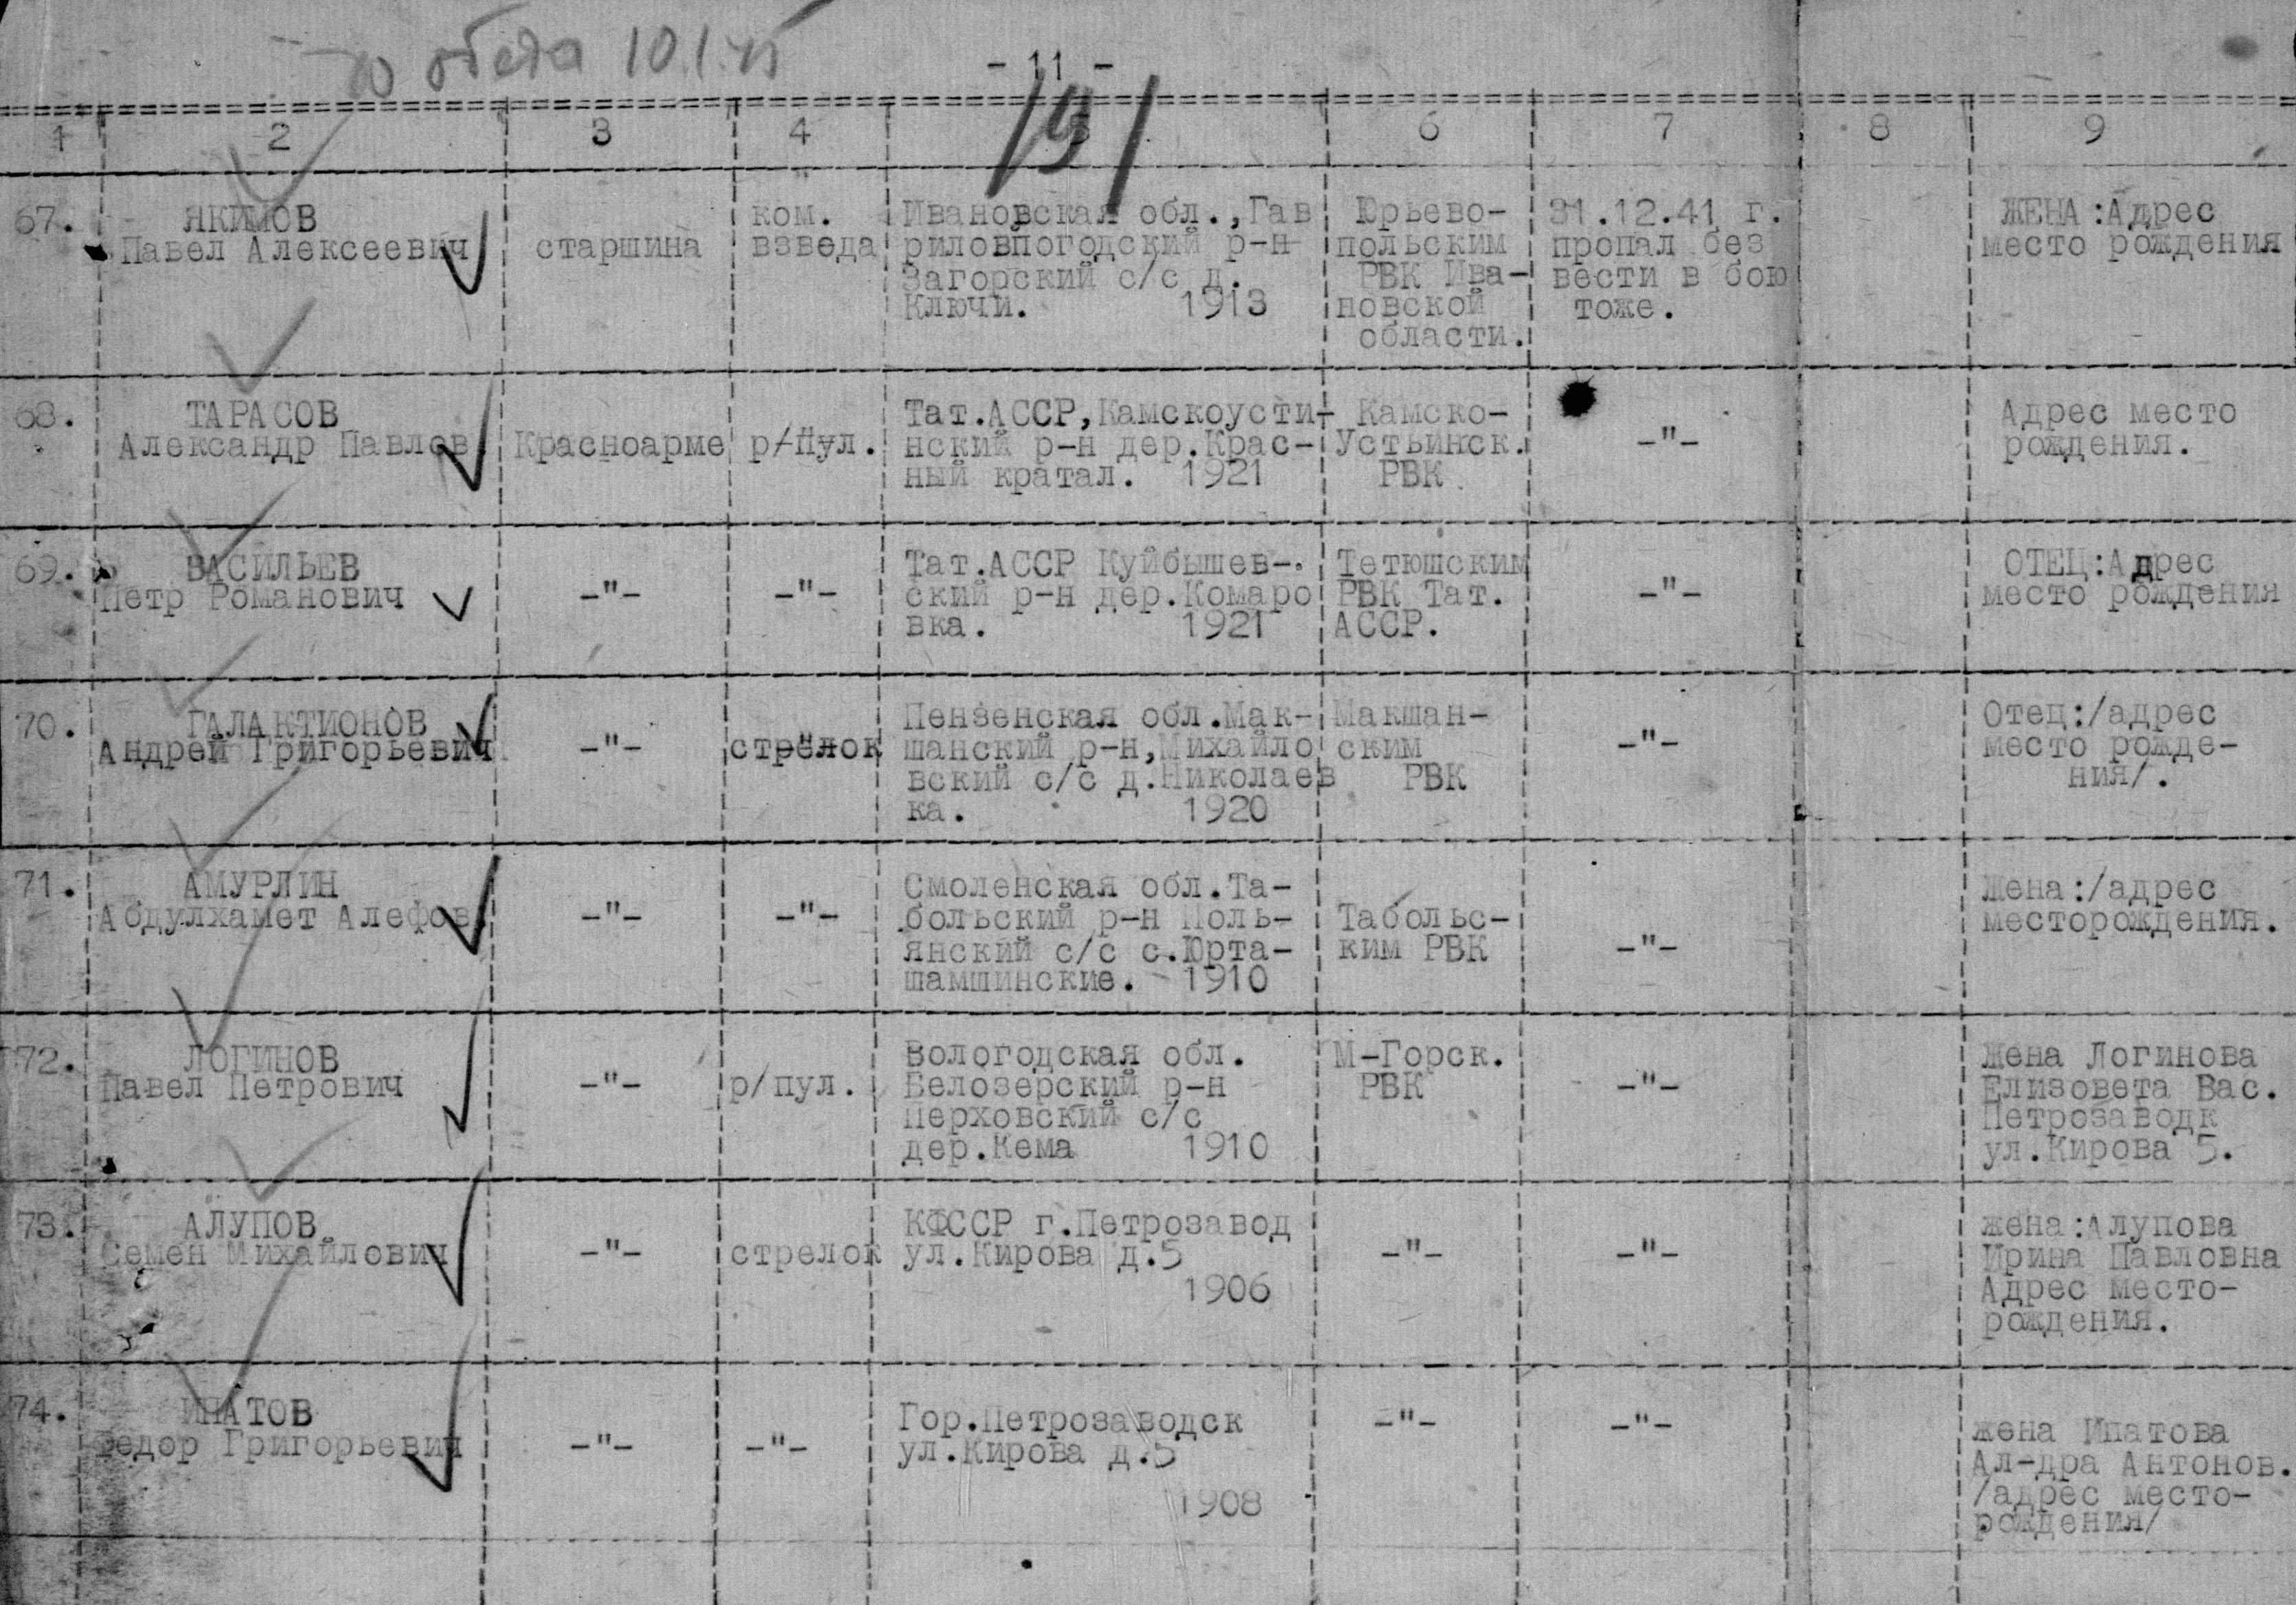 обеда 10.1.45
- 11 -
191
1 2 3 4 6 7 8 9
67. ЯКИМОВ
Павел Алексеевич
старшина
ком.
взвода
Ивановская обл.,Гав
риловпогодский р-н
Загорский с/с д.
Ключи. 1913
Юрьево-
польским
РВК Ива-
новской
области.
31.12.41 г.
пропал без
вести в бою
тоже.
ЖЕНА:Адрес
место рождения
68. ТАРАСОВ
Александр Павлов.
Красноарме
р/пул.
Тат.АССР,Камскоусти-
нский р-н дер.Крас-
ный кратал. 1921
Камско-
Устьинск.
РВК
-"-
Адрес место
рождения.
69. ВАСИЛЬЕВ
Петр Романович
-"-
-"-
Тат.АССР Куйбышев-
ский р-н дер.Комаро
вка. 1921
Тетюшским
РВК Тат.
АССР.
-"-
ОТЕЦ:Адрес
место рождения
70. ГАЛАКТИОНОВ
Андрей Григорьевич
-"-
стрелок
Пензенская обл.Мак-
шанский р-н,Михайло
вский с/с д.Николаев
ка. 1920
Макшан-
ским
РВК
-"-
Отец:/адрес
место рожде-
ния/.
71. АМУРЛИН
Абдулхамет Алефов.
-"-
-"-
Смоленская обл.Та-
больский р-н Поль-
янский с/с с.Юрта-
шамшинские. 1910
Табольс-
ким РВК
-"-
Жена:/адрес
месторождения.
72. ЛОГИНОВ
Павел Петрович
-"-
р/пул.
Вологодская обл.
Белозерский р-н
Перховский с/с
дер.Кема 1910
М-Горск.
РВК
-"-
Жена Логинова
Елизовета Вас.
Петрозаводк
ул.Кирова 5.
73. АЛУПОВ
Семен Михайлович
-"-
стрелок
КФССР г.Петрозавод
ул.Кирова д.5
1906
-"-
-"-
жена:Алупова
Ирина Павловна
Адрес место-
рождения.
74. ИПАТОВ
Федор Григорьевич
-"-
-"-
Гор.Петрозаводск
ул.Кирова д.5
1908
-"-
-"-
жена Ипатова
Ал-дра Антонов.
/адрес место-
рождения/